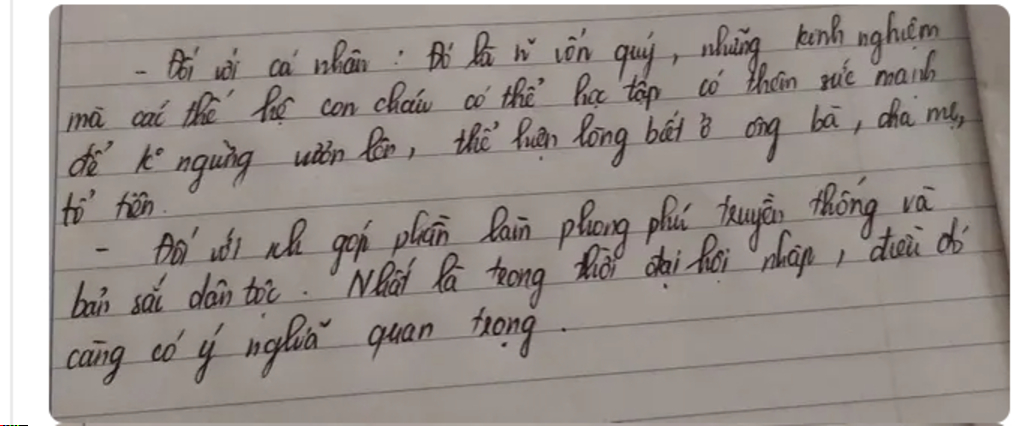 - Đối với cá nhân : Đó là n~ vốn quý, những kinh nghiệm
mà các thế hệ con cháu có thể học tập có thêm sức mạnh
để k° ngừng vươn lên, thể hiện lòng biết ơn ông bà, cha mẹ,
tổ tiên.
- Đối với xh góp phần làm phong phú truyền thống và
bản sắc dân tộc. Nhất là trong thời đại hội nhập, điều đó
càng có ý nghĩa quan trọng.